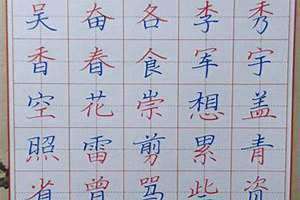 吴奋各李秀
香春食军宇
空花崇想盖
照雷剪累青
省曾骂些资